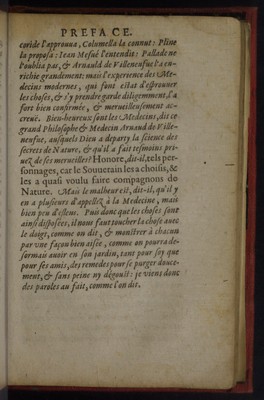 PREFACE.
coride l'approuua, Columella la connut: Pline
la proposa: Iean Mesué l'entendit: Pallade ne
l'oublia pas, & Arnauld de Villeneufue l'a en-
richie grandement: mais l'experience des Me-
decins modernes, qui font estat d'esprouuer
les choses, & s'y prendre garde diligemment, l'a
fort bien confirmée, & merueilleusement ac-
creuë. Bien-heureux sont les Medecins, dit ce
grand Philosophe & Medecin Arnaud de Ville-
neufue, ausquels Dieu a departy la science des
secrets de Nature, & qu'il a fait tesmoins pri-
uez de ses merueilles! Honore, dit-il, tels per-
sonnages, car le Souuerain les a choisis, &
les a quasi voulu faire compagnons de
Nature. Mais le malheur est, dit-il, qu'il y
en a plusieurs d'appellez à la Medecine, mais
bien peu d'esleus. Puis donc que les choses sont
ainsi disposées, il nous faut toucher la chose auec
le doigt, comme on dit, & monstrer à chacun
par vne façon bien aisée, comme on pourra de-
sormais auoir en son jardin, tant pour soy que
pour ses amis, des remedes pour se purger douce-
ment, & sans peine ny dégoust: je viens donc
des paroles au fait, comme l'on dit.